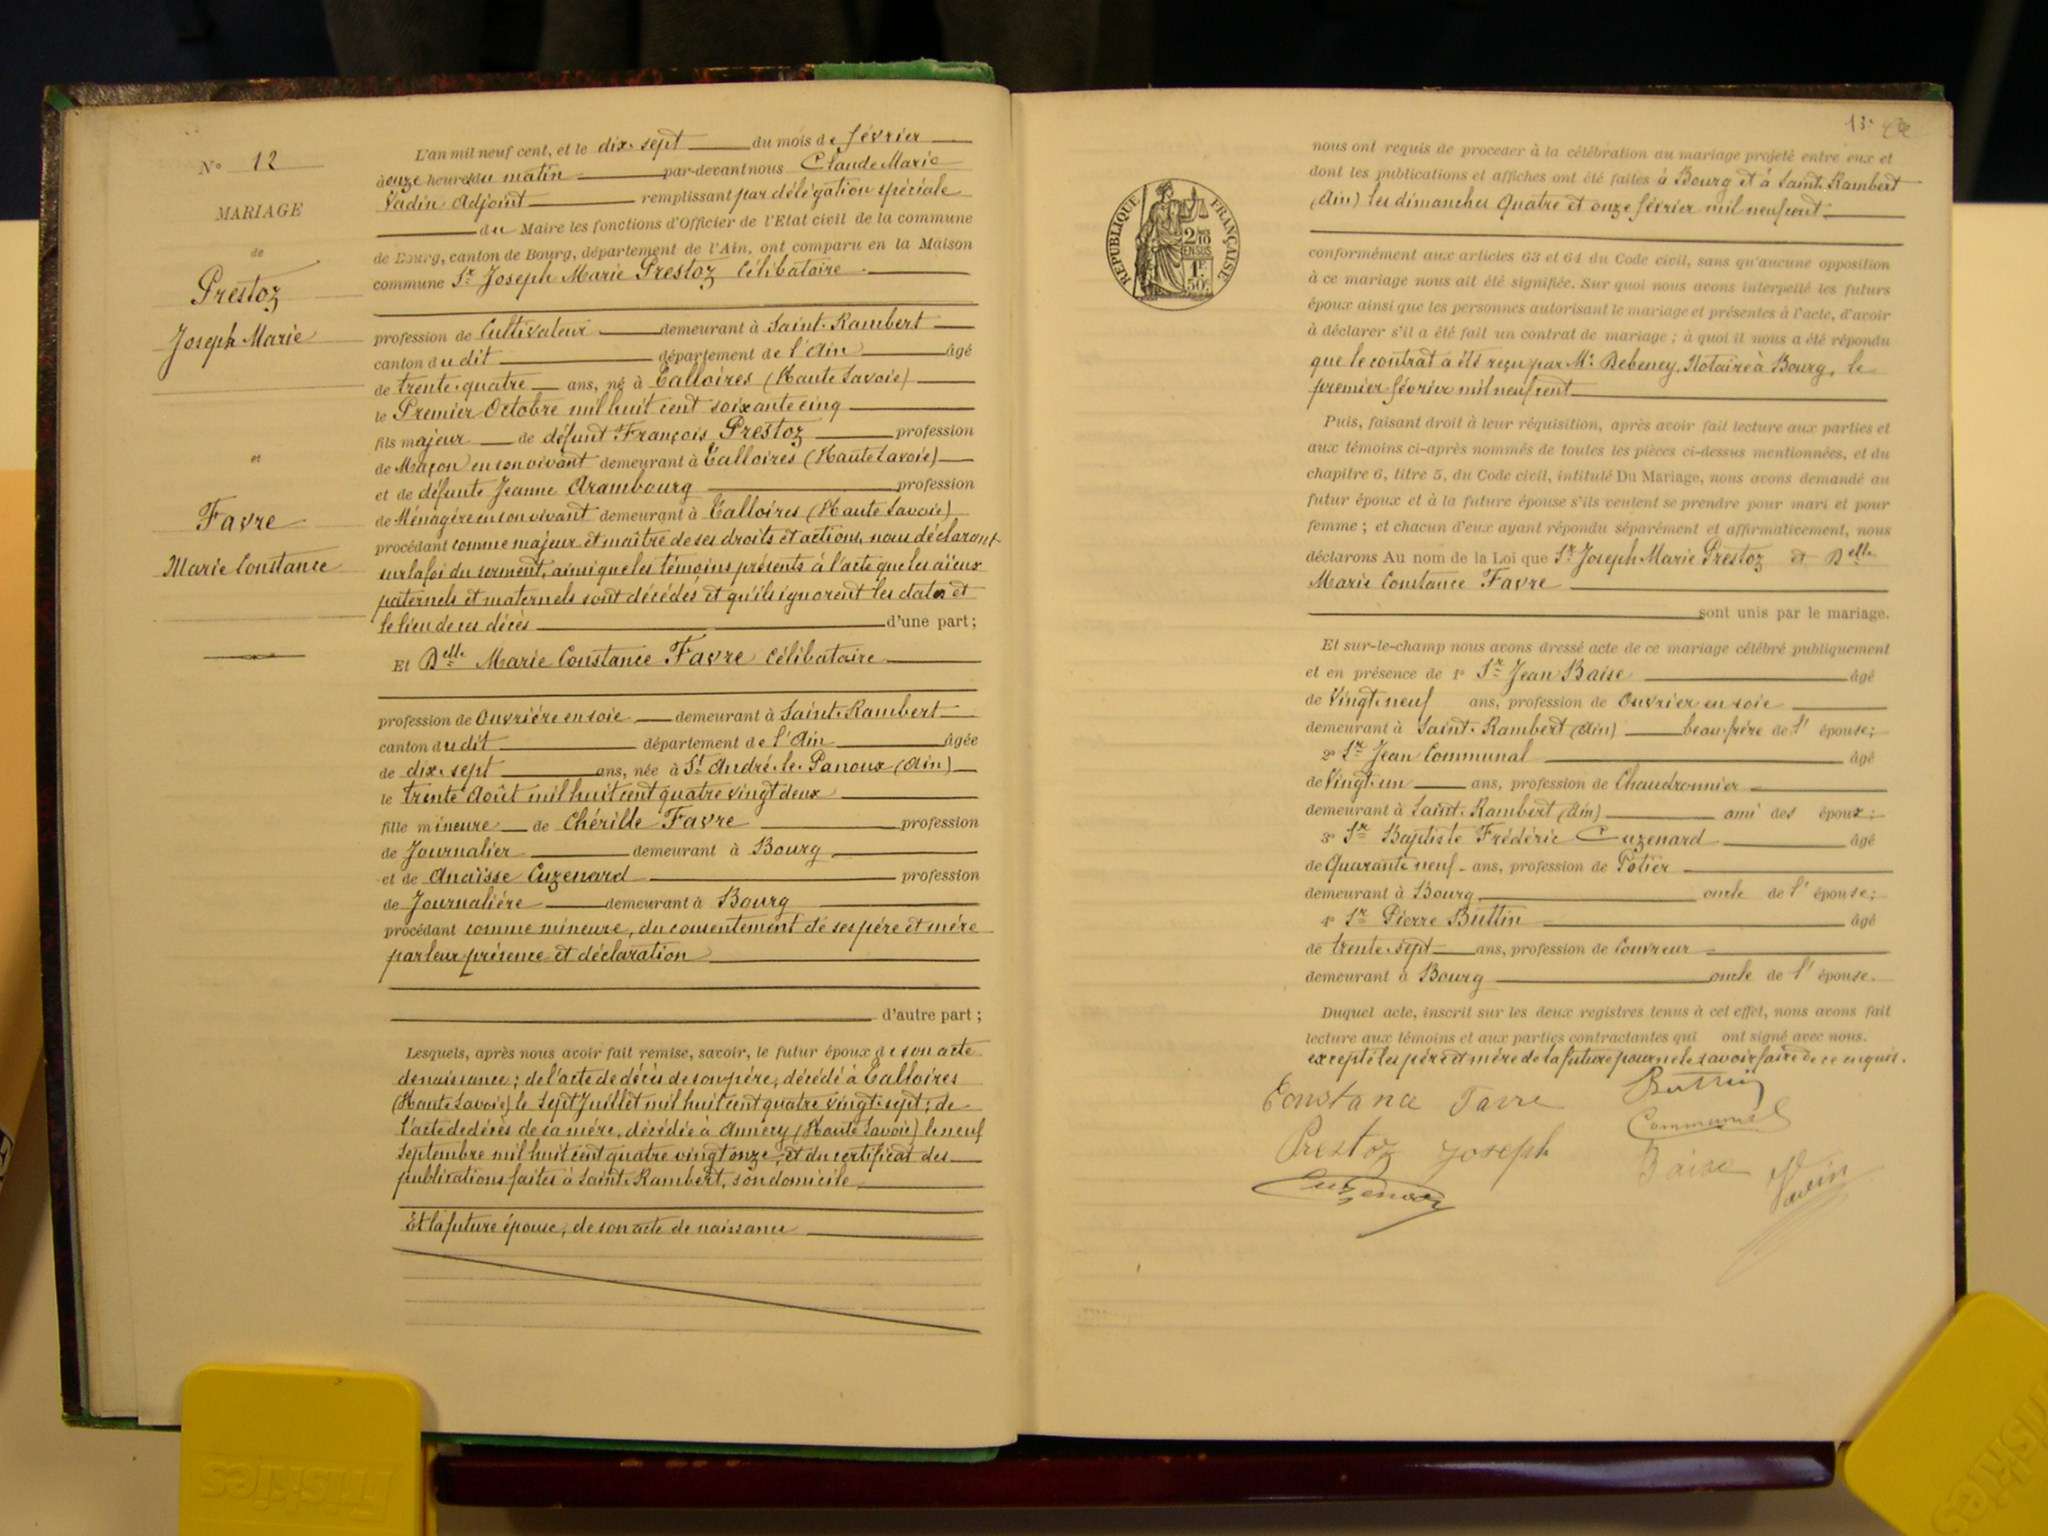 N° 12
MARIAGE
de
Prestoz
Joseph Marie
et
Favre
Marie Constance
L'an mil neuf cent, et le dix-sept du mois de février
à onze heures du matin par-devant nous Claude Marie
Vadin Adjoint remplissant par délégation spéciale
du Maire les fonctions d'Officier de l'Etat civil de la commune
de Bourg, canton de Bourg, département de l'Ain, ont comparu en la Maison
commune Sr Joseph Marie Prestoz célibataire
profession de Cultivateur demeurant à Saint-Rambert
canton du dit département de l'Ain âgé
de trente-quatre ans, né à Talloires (Haute Savoie)
le Premier Octobre mil huit cent soixante cinq
fils majeur de défunt François Prestoz profession
de Maçon en son vivant demeurant à Talloires (Haute Savoie)
et de défunte Jeanne Arambourg profession
de Ménagère en son vivant demeurant à Talloires (Haute Savoie)
procédant comme majeur et maître de ses droits et actions, nous déclarant
sur la foi du serment, ainsi que les témoins présents à l'acte que les aïeux
paternels et maternels sont décédés et qu'ils ignorent les dates et
le lieu de ces décès d'une part;
Et Delle Marie Constance Favre célibataire
profession de Ouvrière en soie demeurant à Saint-Rambert
canton du dit département de l'Ain âgée
de dix-sept ans, née à St André-le-Panoux (Ain)
le trente Août mil huit cent quatre vingt deux
fille mineure de Chérille Favre profession
de Journalier demeurant à Bourg
et de Anaïsse Cuzenard profession
de Journalière demeurant à Bourg
procédant comme mineure, du consentement de ses père et mère
par leur présence et déclaration
d'autre part;
Lesquels, après nous avoir fait remise, savoir, le futur époux de son acte
de naissance; de l'acte de décès de son père, décédé à Talloires
(Haute Savoie) le sept Juillet mil huit cent quatre vingt-sept; de
l'acte de décès de sa mère, décédée à Annecy (Haute Savoie) le neuf
Septembre mil huit cent quatre vingt onze, et du certificat des
publications faites à Saint-Rambert, son domicile
Et la future épouse, de son acte de naissance
13
RÉPUBLIQUE FRANÇAISE
2/10 EN SUS
1F 50c
nous ont requis de procéder à la célébration du mariage projeté entre eux et
dont les publications et affiches ont été faites à Bourg et à Saint-Rambert
(Ain) les dimanches Quatre et onze février mil neuf cent
conformément aux articles 63 et 64 du Code civil, sans qu'aucune opposition
à ce mariage nous ait été signifiée. Sur quoi nous avons interpellé les futurs
époux ainsi que les personnes autorisant le mariage et présentes à l'acte, d'avoir
à déclarer s'il a été fait un contrat de mariage; à quoi il nous a été répondu
que le contrat a été reçu par Me Debeney, Notaire à Bourg, le
premier février mil neuf cent
Puis, faisant droit à leur réquisition, après avoir fait lecture aux parties et
aux témoins ci-après nommés de toutes les pièces ci-dessus mentionnées, et du
chapitre 6, titre 5, du Code civil, intitulé Du Mariage, nous avons demandé au
futur époux et à la future épouse s'ils veulent se prendre pour mari et pour
femme; et chacun d'eux ayant répondu séparément et affirmativement, nous
déclarons Au nom de la Loi que Sr Joseph Marie Prestoz et Delle
Marie Constance Favre
sont unis par le mariage.
Et sur-le-champ nous avons dressé acte de ce mariage célébré publiquement
et en présence de 1° Sr Jean Baise âgé
de Vingt-neuf ans, profession de Ouvrier en soie
demeurant à Saint-Rambert (Ain) beau-frère de l'épouse;
2° Sr Jean Communal âgé
de Vingt-un ans, profession de Chaudronnier
demeurant à Saint-Rambert (Ain) ami des époux;
3° Sr Baptiste Frédéric Cuzenard âgé
de Quarante neuf ans, profession de Potier
demeurant à Bourg oncle de l'épouse;
4° Sr Pierre Buttin âgé
de trente-sept ans, profession de Couvreur
demeurant à Bourg oncle de l'épouse.
Duquel acte, inscrit sur les deux registres tenus à cet effet, nous avons fait
lecture aux témoins et aux parties contractantes qui ont signé avec nous.
excepté les père et mère de la future pour ne le savoir faire de ce enquis.
Constance Favre Buttin
Communal
Prestoz Joseph
Baise Vadin
Cuzenard
Tris-ties